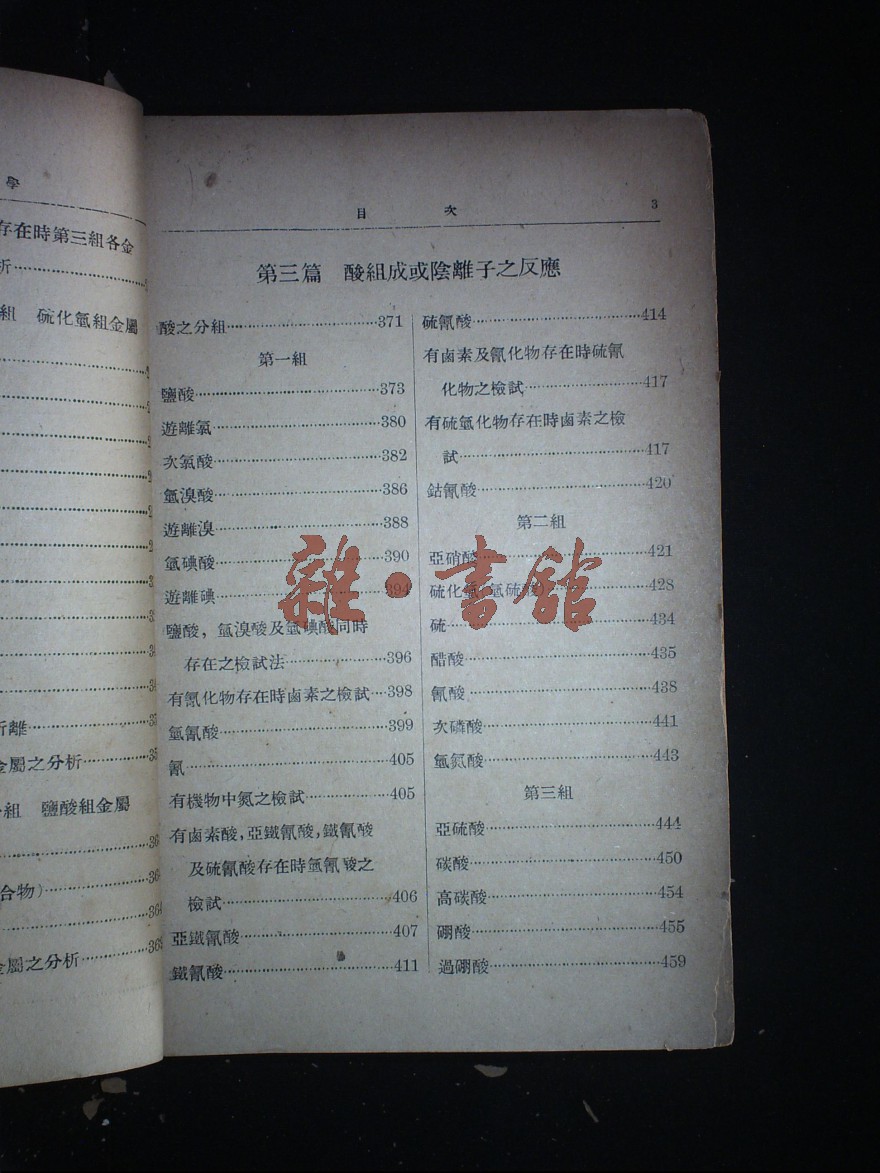 學
存在時第三組各金
析
組 硫化氫組金屬
析離
金屬之分析
組 鹽酸組金屬
合物)
金屬之分析
目 次 3
第三篇 酸組成或陰離子之反應
酸之分組 371
第一組
鹽酸 373
遊離氯 380
次氯酸 382
氫溴酸 386
遊離溴 388
氫碘酸 390
遊離碘 394
鹽酸,氫溴酸及氫碘酸同時
存在之檢試法 396
有氰化物存在時鹵素之檢試 398
氫氰酸 399
氰 405
有機物中氮之檢試 405
有鹵素酸,亞鐵氰酸,鐵氰酸
及硫氰酸存在時氫氰酸之
檢試 406
亞鐵氰酸 407
鐵氰酸 411
硫氰酸 414
有鹵素及氰化物存在時硫氰
化物之檢試 417
有硫氫化物存在時鹵素之檢
試 417
鈷氰酸 420
第二組
亞硝酸 421
硫化氫(氫硫酸) 428
硫 434
醋酸 435
氰酸 438
次磷酸 441
氫氮酸 443
第三組
亞硫酸 444
碳酸 450
高碳酸 454
硼酸 455
過硼酸 459
雜·書館